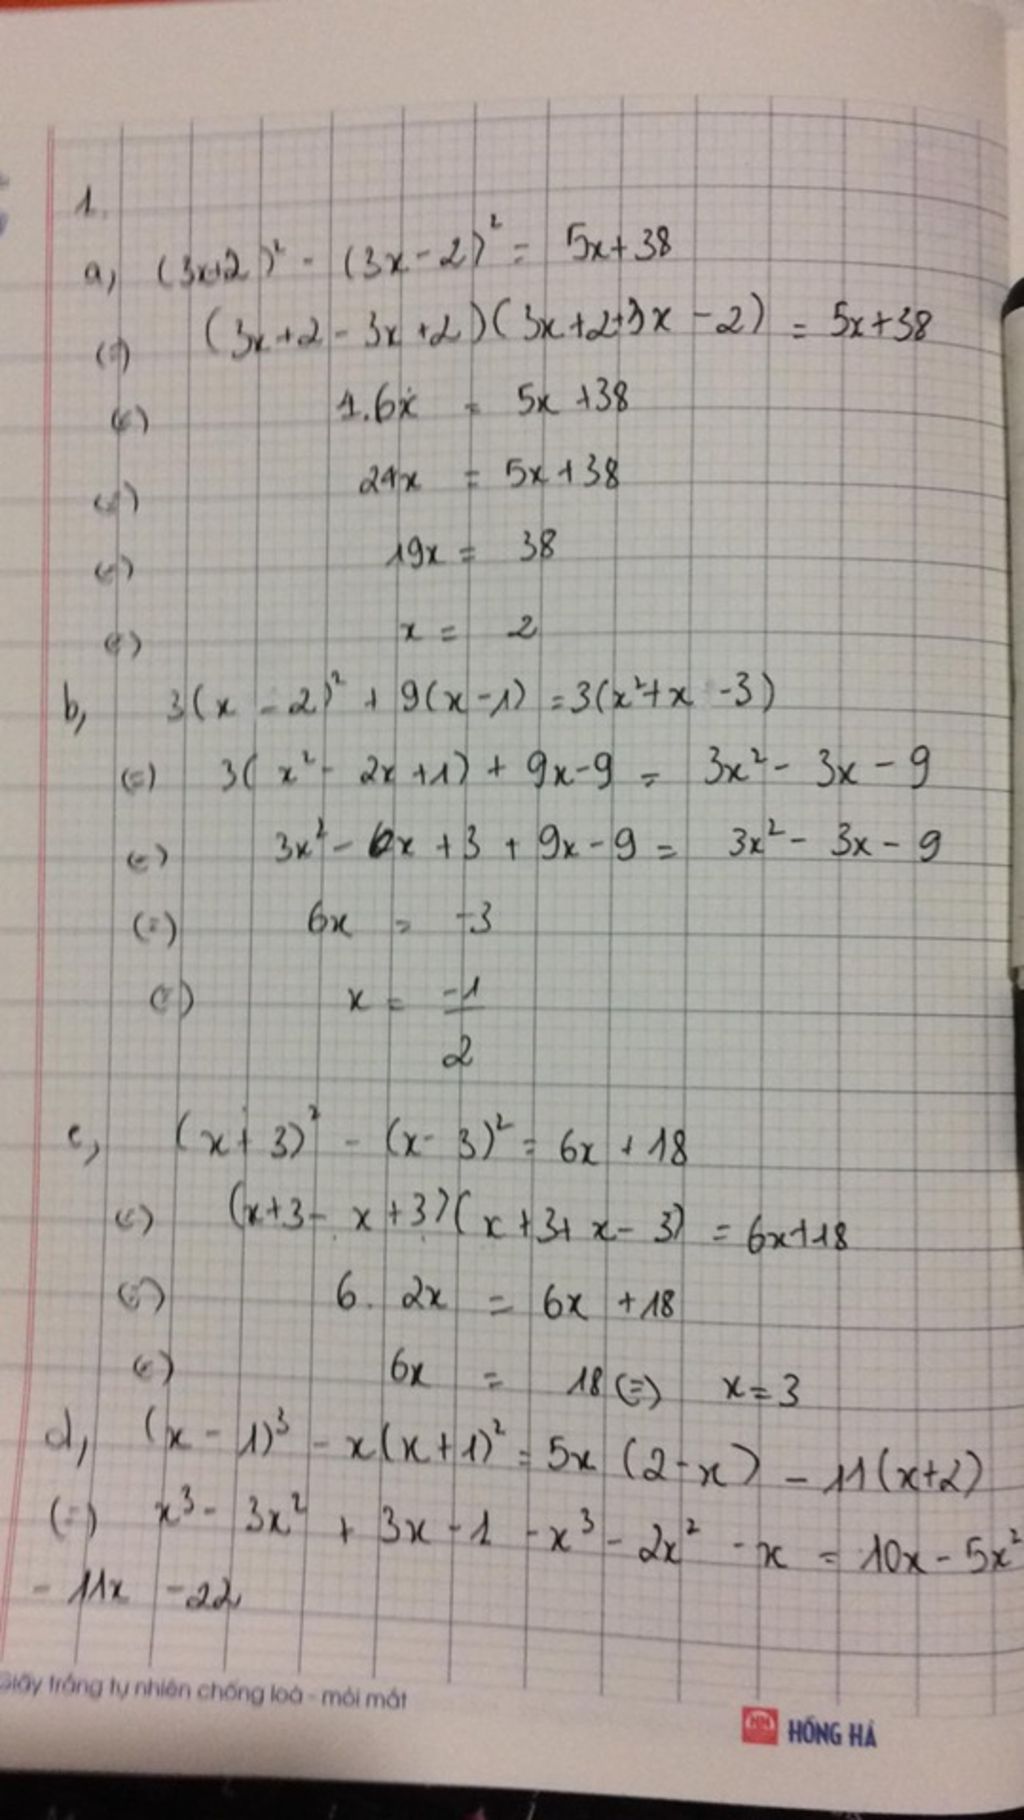 1.
a, (3x+2)² - (3x-2)² = 5x+38
(=) (3x+2-3x+2)(3x+2+3x-2) = 5x+38
(=) 4.6x = 5x+38
(=) 24x = 5x+38
(=) 19x = 38
(=) x = 2
b, 3(x-2)² + 9(x-1) = 3(x²+x-3)
(=) 3(x²-2x+1) + 9x-9 = 3x²-3x-9
(=) 3x²-6x+3+9x-9 = 3x²-3x-9
(=) 6x = -3
(=) x = -1
2
c, (x+3)² - (x-3)² = 6x+18
(=) (x+3-x+3)(x+3+x-3) = 6x+18
(=) 6. 2x = 6x+18
(=) 6x = 18 (=) x=3
d, (x-1)³ - x(x+1)² = 5x(2-x) - 11(x+2)
(=) x³-3x²+3x-1-x³-2x²-x = 10x-5x²
-11x -22
Giấy trắng tự nhiên chống loá - mỏi mắt
HH HỒNG HÀ